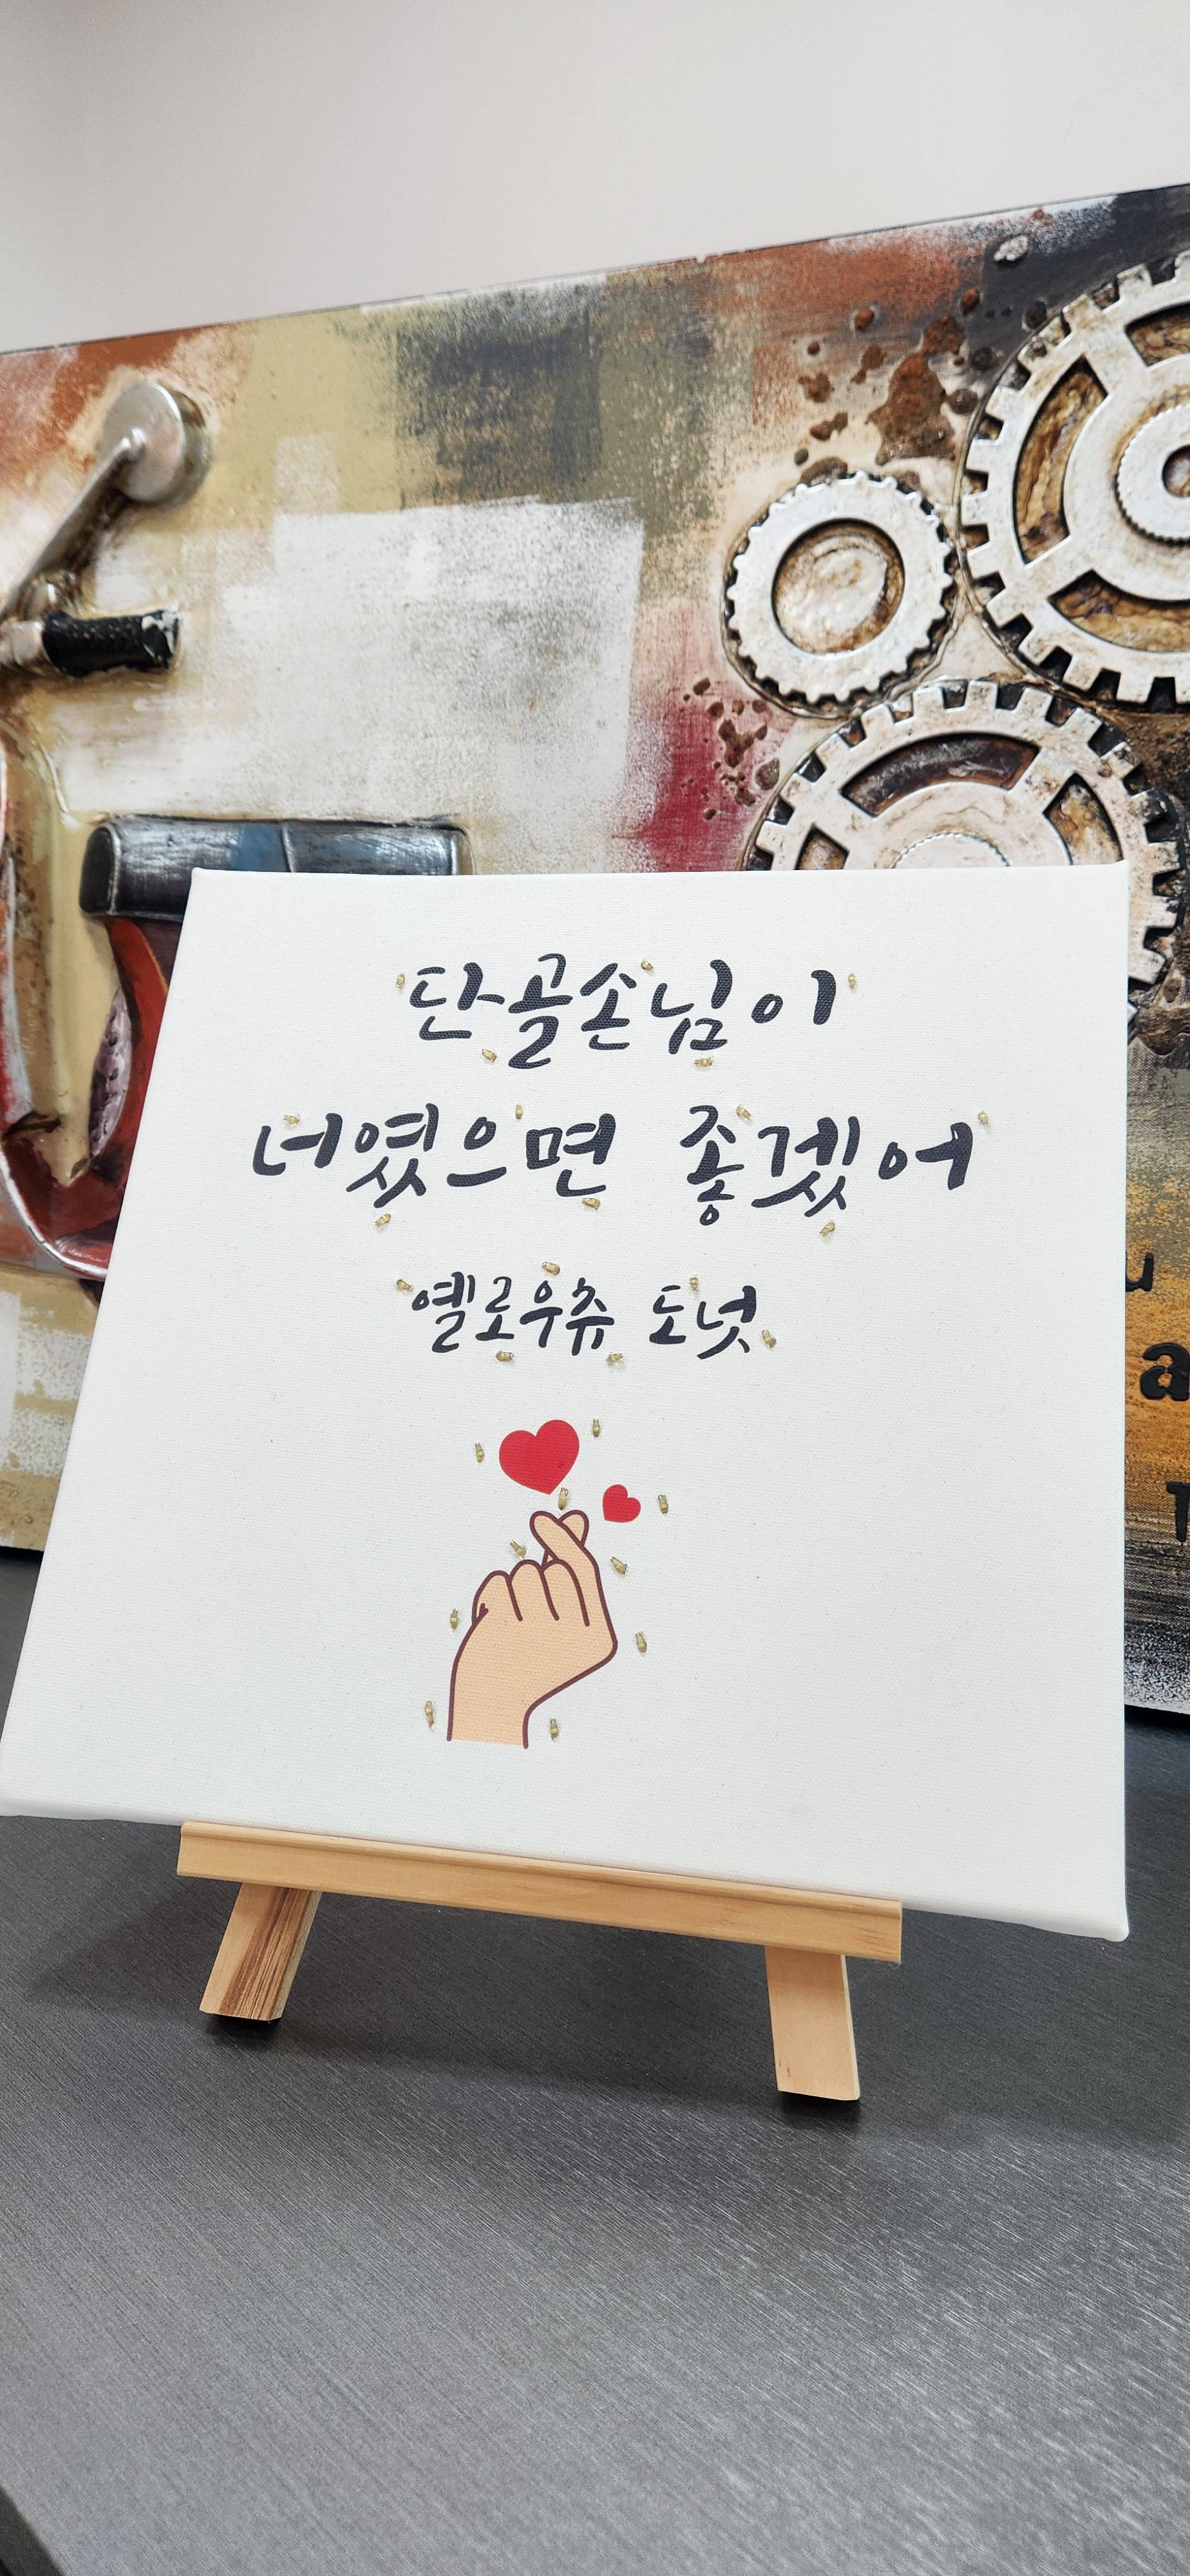 단골손님이
너였으면 좋겠어
옐로우츄 도넛